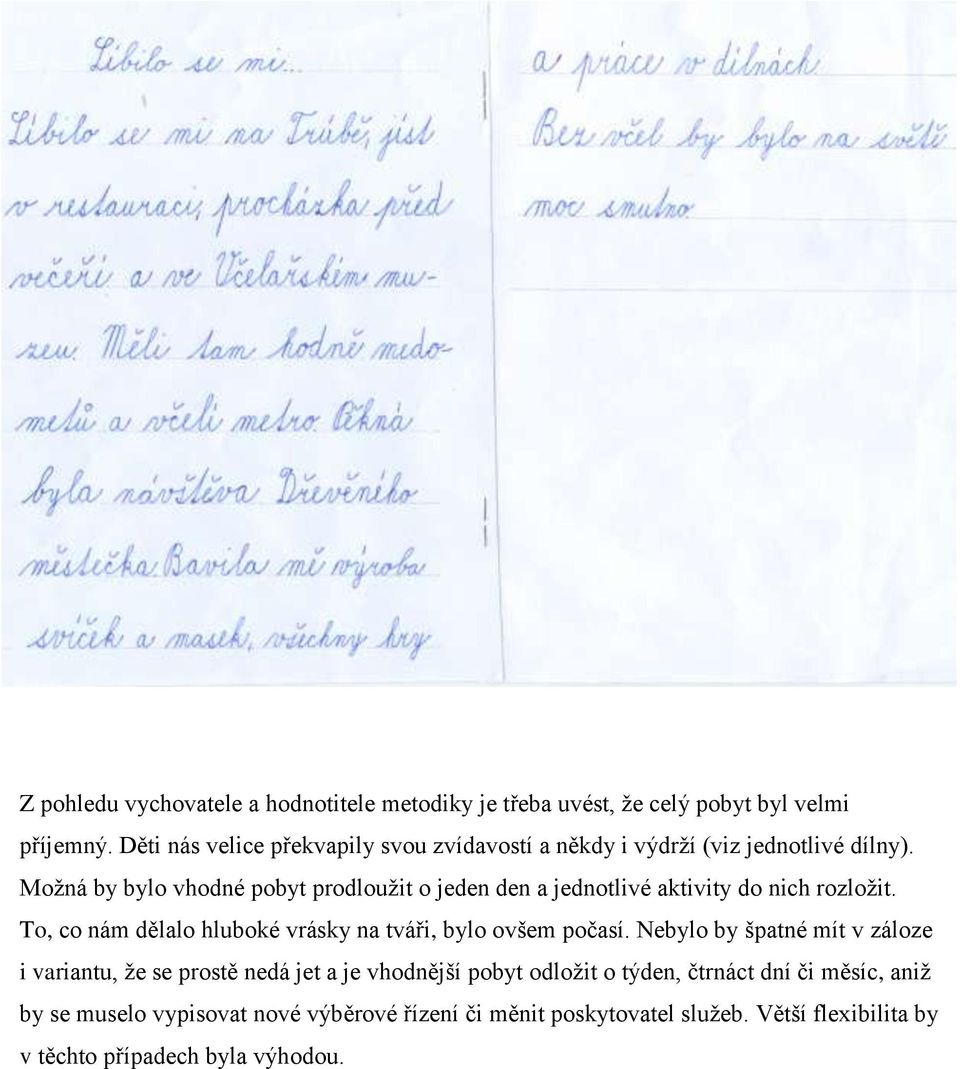 Líbilo se mi...
Líbilo se mi na Trúbě, jíst
v restauraci, procházka před
večeří a ve Včelařském mu-
zeu. Měli tam hodně medo-
metů a včelí metro. Pěkná
byla návštěva Dřevěného
městečka. Bavila mě výroba
svíček a masek, všechny hry
a práce v dílnách.
Bez včel by bylo na světě
moc smutno.
Z pohledu vychovatele a hodnotitele metodiky je třeba uvést, že celý pobyt byl velmi
příjemný. Děti nás velice překvapily svou zvídavostí a někdy i výdrží (viz jednotlivé dílny).
Možná by bylo vhodné pobyt prodloužit o jeden den a jednotlivé aktivity do nich rozložit.
To, co nám dělalo hluboké vrásky na tváři, bylo ovšem počasí. Nebylo by špatné mít v záloze
i variantu, že se prostě nedá jet a je vhodnější pobyt odložit o týden, čtrnáct dní či měsíc, aniž
by se muselo vypisovat nové výběrové řízení či měnit poskytovatel služeb. Větší flexibilita by
v těchto případech byla výhodou.